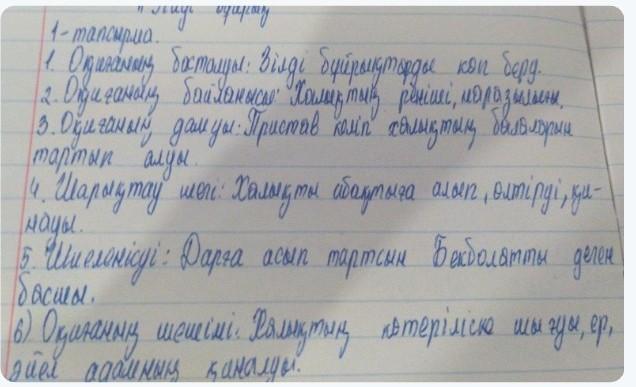 "Зілді бұйрық"
1-тапсырма.
1. Оқиғаның басталуы: Зілді бұйрықтарды көп беру.
2. Оқиғаның байланысы: Халықтың реніші, наразылығы.
3. Оқиғаның дамуы: Пристав келіп халықтың балаларын
тартып алуы.
4. Шарықтау шегі: Халықты абақтыға алып, өлтірді, қи-
нады.
5. Шиеленісуі: Дарға асып тартсын Бекболатты деген
басшы.
6) Оқиғаның шешімі: Халықтың көтеріліске шығуы, ер,
әйел адамның қиналуы.